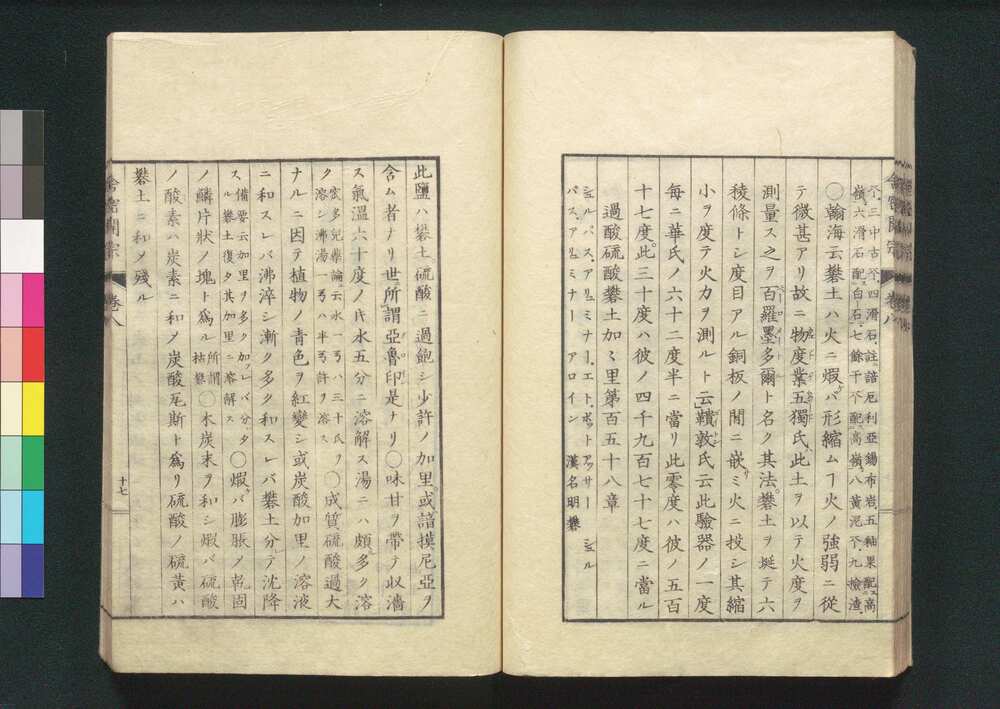 不、三中古不、四滑石、註諳厄利亞錫布岩五釉果配高
嶺、六滑石配白石、七餘干不配高嶺、八黃泥不、九檢渣、
〇瀚海云礬土ハ火ニ煆レバ形縮ムヿ火ノ強弱ニ從
テ微甚アリ故ニ物度業五獨氏、此土ヲ以テ火度ヲ
測量ス之ヲ百羅墨多爾ト名ク其法、礬土ヲ埏テ六
稜條トシ度目アル銅板ノ間ニ嵌ミ火ニ投シ其縮
小ヲ度テ火力ヲ測ルト云、轒敦氏云此驗器ノ一度
每ニ華氏ノ六十二度半ニ當リ此零度ハ彼ノ五百
十七度、此三十度ハ彼ノ四千九百七十七度ニ當ル
過酸硫酸礬土加々里第百五十八章
シュルパス、アリュミナー、エト、ポットアッサー シュル
パス、アリュミナー アロイン 漢名明礬
此鹽ハ礬土硫酸ニ過飽シ少許ノ加里、或諳摸尼亞ヲ
含ム者ナリ世ニ所謂亞魯印是ナリ〇味甘ヲ帶テ收濇
ス氣溫六十度ノ片水五分ニ溶解ス湯ニハ頗多ク溶
ク蜜多兒藥論云水一弓ハ三十氏ヲ
溶シ沸湯一弓ハ半弓許ヲ溶ス〇成質、硫酸過大
ナルニ因テ植物ノ青色ヲ紅變シ或炭酸加里ノ溶液
ニ和スレバ沸淬シ漸ク多ク和スレバ礬土分テ沈降
ス備要云加里ヲ多ク加レバ分タ
ル礬土復タ其加里ニ溶解ス〇煆レバ膨脹ノ乾固
ノ鱗片狀ノ塊ト爲ル所謂
枯礬〇木炭末ヲ和シ煆バ硫酸
ノ酸素ハ炭素ニ和ノ炭酸瓦斯ト爲リ硫酸ノ硫黃ハ
礬土ニ和ノ殘ル
舍密開宗
卷八
十七